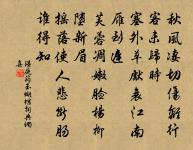 秋風凄切傷離行
客未歸時
塞外草衰江南
雁到遲
芙蓉凋嫩臉楊柳
墮新眉
搖落使人悲斷腸
誰得知
溫庭筠玉蝴蝶